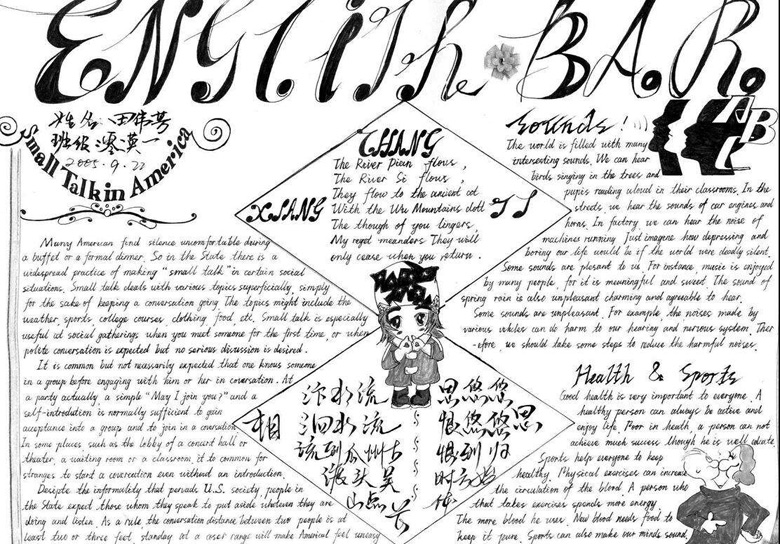 ENGLISh BAR
姓名 田伟芳
2005.9.22
Small Talk in America
Many American find silence uncomfortable during
a buffet or a formal dinner. So in the State there is a
widespread practice of making "small talk" in certain social
situations. Small talk deals with various topics superficially, simply
for the sake of keeping a conversation going. The topics might include the
weather, sports, college courses, clothing, food etc. Small talk is especially
useful at social gatherings when you meet someone for the first time, or when
polite conversation is expected but no serious discussion is desired.
It is common but not necessarily expected that one knows someone
in a group before engaging with him or her in conversation. At
a party actually a simple "May I join you?" and a
self-introdution is normally sufficient to gain
acceptance into a group and to join in a conversation.
In some places such as the lobby of a concert hall or
theater, a waiting room or a classroom, it's common for
stranges to start a conversation even without an introduction.
Despite the informality that pervade U.S. society, people in
the State expect those whom they speak to put aside whatever they are
doing and listen. As a rule the conversation distance between two people is at
least two or three feet, standay at a user range will make American feel uneasy
CHANG
XIANG
SI
The River Pian flows,
The River Si flows,
They flow to the ancient
With the Wu Mountains
The though of you lingers,
My regret meanders They will
only cease when you return.
相
思
汴水流
泗水流
流到瓜州古
渡头 吴
山点
思悠悠
恨悠悠
恨到归
时方始
休
Sounds!
ABC
The world is filled with many
interesting sounds. We can hear
birds singing in the trees and
pupils reading aloud in their classrooms. In the
streets we hear the sounds of car engines and
horns. In factory, we can hear the noise of
machines running. Just imagine how depressing and
boring our life would be if the world were deadly silent.
Some sounds are plesant to us. For instance, music is enjoyed
by many people, for it is meaningful and sweet. The sound of
spring rain is also unpleasant charming and agreable to hear.
Some sounds are unpleasant. For example the noises made by
various vehicles can do harm to our hearing and nervous system. Ther
-efore we should take some steps to reduce the harmful noises.
Health & Sports
Good health is very important to everyone. A
healthy person can always be active and
enjoy life. Poor in health, a person can not
achieve much success, though he is well
Sports help everyone to keep
healthy. Physical exercises can increase
the circulation of the blood. A person who
that takes exercises spends more energy.
The more blood he uses. New blood needs food to
keep it pure. Sports can also make our minds sound,